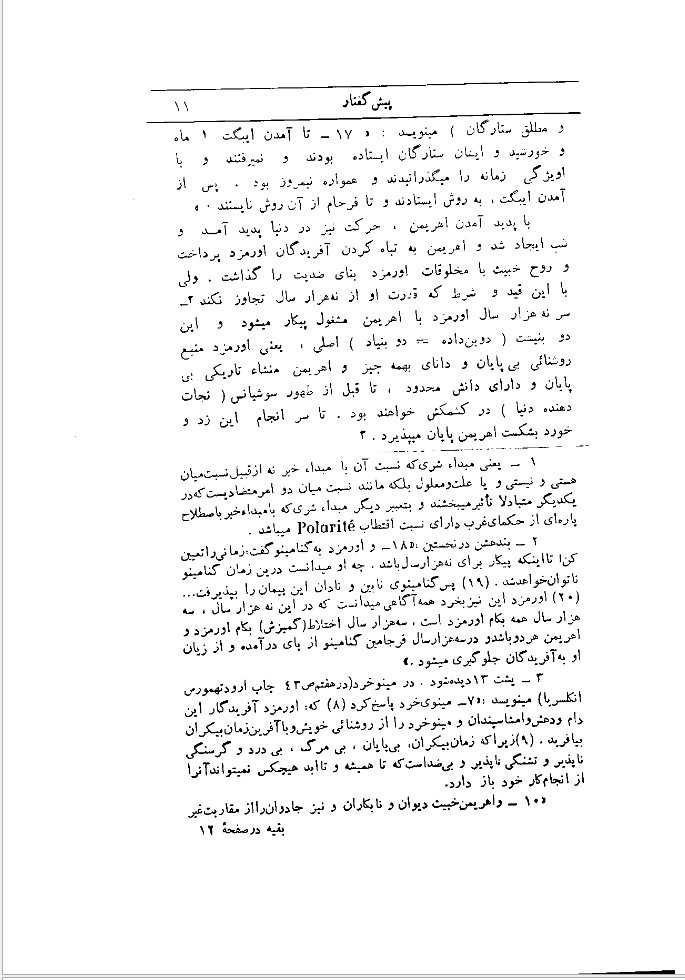 پیش گفتار
۱۱
و مطلق ستارگان ) مینویسد : « ۱۷ـ تا آمدن ایبگت ۱ ماه
و خورشید و اینان ستارگان ایستاده بودند و نمیرفتند و با
اویژگی زمانه را میگذرانیدند و همواره نیمروز بود . پس از
آمدن ایبگت ، به روش ایستادند و تا فرجام از آن روش نایستند . »
با پدید آمدن اهریمن ، حرکت نیز در دنیا پدید آمد و
شب ایجاد شد و اهریمن به تباه کردن آفریدگان اورمزد پرداخت
و روح خبیث با مخلوقات اورمزد بنای ضدیت را گذاشت . ولی
با این قید و شرط که قدرت او از نه‌هزار سال تجاوز نکند ۲ـ
سر نه هزار سال اورمزد با اهریمن مشغول پیکار میشود و این
دو بنیست ( دوبن‌داده = دو بنیاد ) اصلی ، یعنی اورمزد منبع
روشنائی بی‌پایان و دانای بهمه چیز و اهریمن منشاء تاریکی بی
پایان و دارای دانش محدود ، تا قبل از ظهور سوشیانس ( نجات
دهنده دنیا ) در کشمکش خواهند بود . تا سر انجام این زد و
خورد بشکست اهریمن پایان میپذیرد . ۳
۱ ـ یعنی مبداء شری‌که نسبت آن با مبداء خیر نه ازقبیل نسبت‌میان
هستی و نیستی و یا علت‌ومعلول بلکه مانند نسبت میان دو امر متضادیست‌که‌در
یکدیگر متبادلا تأثیرمیبخشند و بتعبیر دیگر مبداء شری‌که بامبداءخیر باصطلاح
پاره‌ای از حکمای‌غرب دارای نسبت اقتطاب Polarité میباشد .
۲ ـ بندهشن درنخستین :«۱۸ـ و اورمزد به‌گنامینوگفت:زمانی‌راتعیین
کن! تااینکه پیکار برای نه‌هزارسال‌باشد . چه او میدانست درین زمان گنامینو
ناتوان‌خواهدشد . (۱۹) پس‌گنامینوی نابین و نادان این پیمان را بپذیرفت...
(۲۰) اورمزد این نیزبخرد همه‌آگاهی میدانست که در این نه هزار سال ، سه
هزار سال همه بکام اورمزد است ، سه‌هزار سال اختلاط(گمیزش) بکام اورمزد و
اهریمن هردوباشدو درسه‌هزارسال فرجامین گنامینو از پای درآمده و از زیان
او به‌آفریدگان جلوگیری میشود .»
۳ ـ یشت ۱۳دیده‌شود . در مینوخرد(درهفتم‌ص۴۳ چاپ ارودتهمورس
انکلسریا) مینویسد :«۷ـ مینوی‌خرد پاسخ‌کرد (۸) که: اورمزد آفریدگار این
دام ودهش‌وامشاسپندان و مینوخرد را از روشنائی خویش‌وباآفرین‌زمان‌بیکران
بیافرید . (۹)زیراکه زمان‌بیکران، بی‌پایان ، بی مرگ ، بی درد و گرسنگی
ناپذیر و تشنگی ناپذیر و بی‌ضداست‌که تا همیشه و تاابد هیچکس نمیتواندآنرا
از انجام‌کار خود باز دارد.
«۱۰ ـ واهریمن‌خبیث دیوان و نابکاران و نیز جادوان‌رااز مقاربت‌غیر
بقیه درصفحهٔ ۱۲